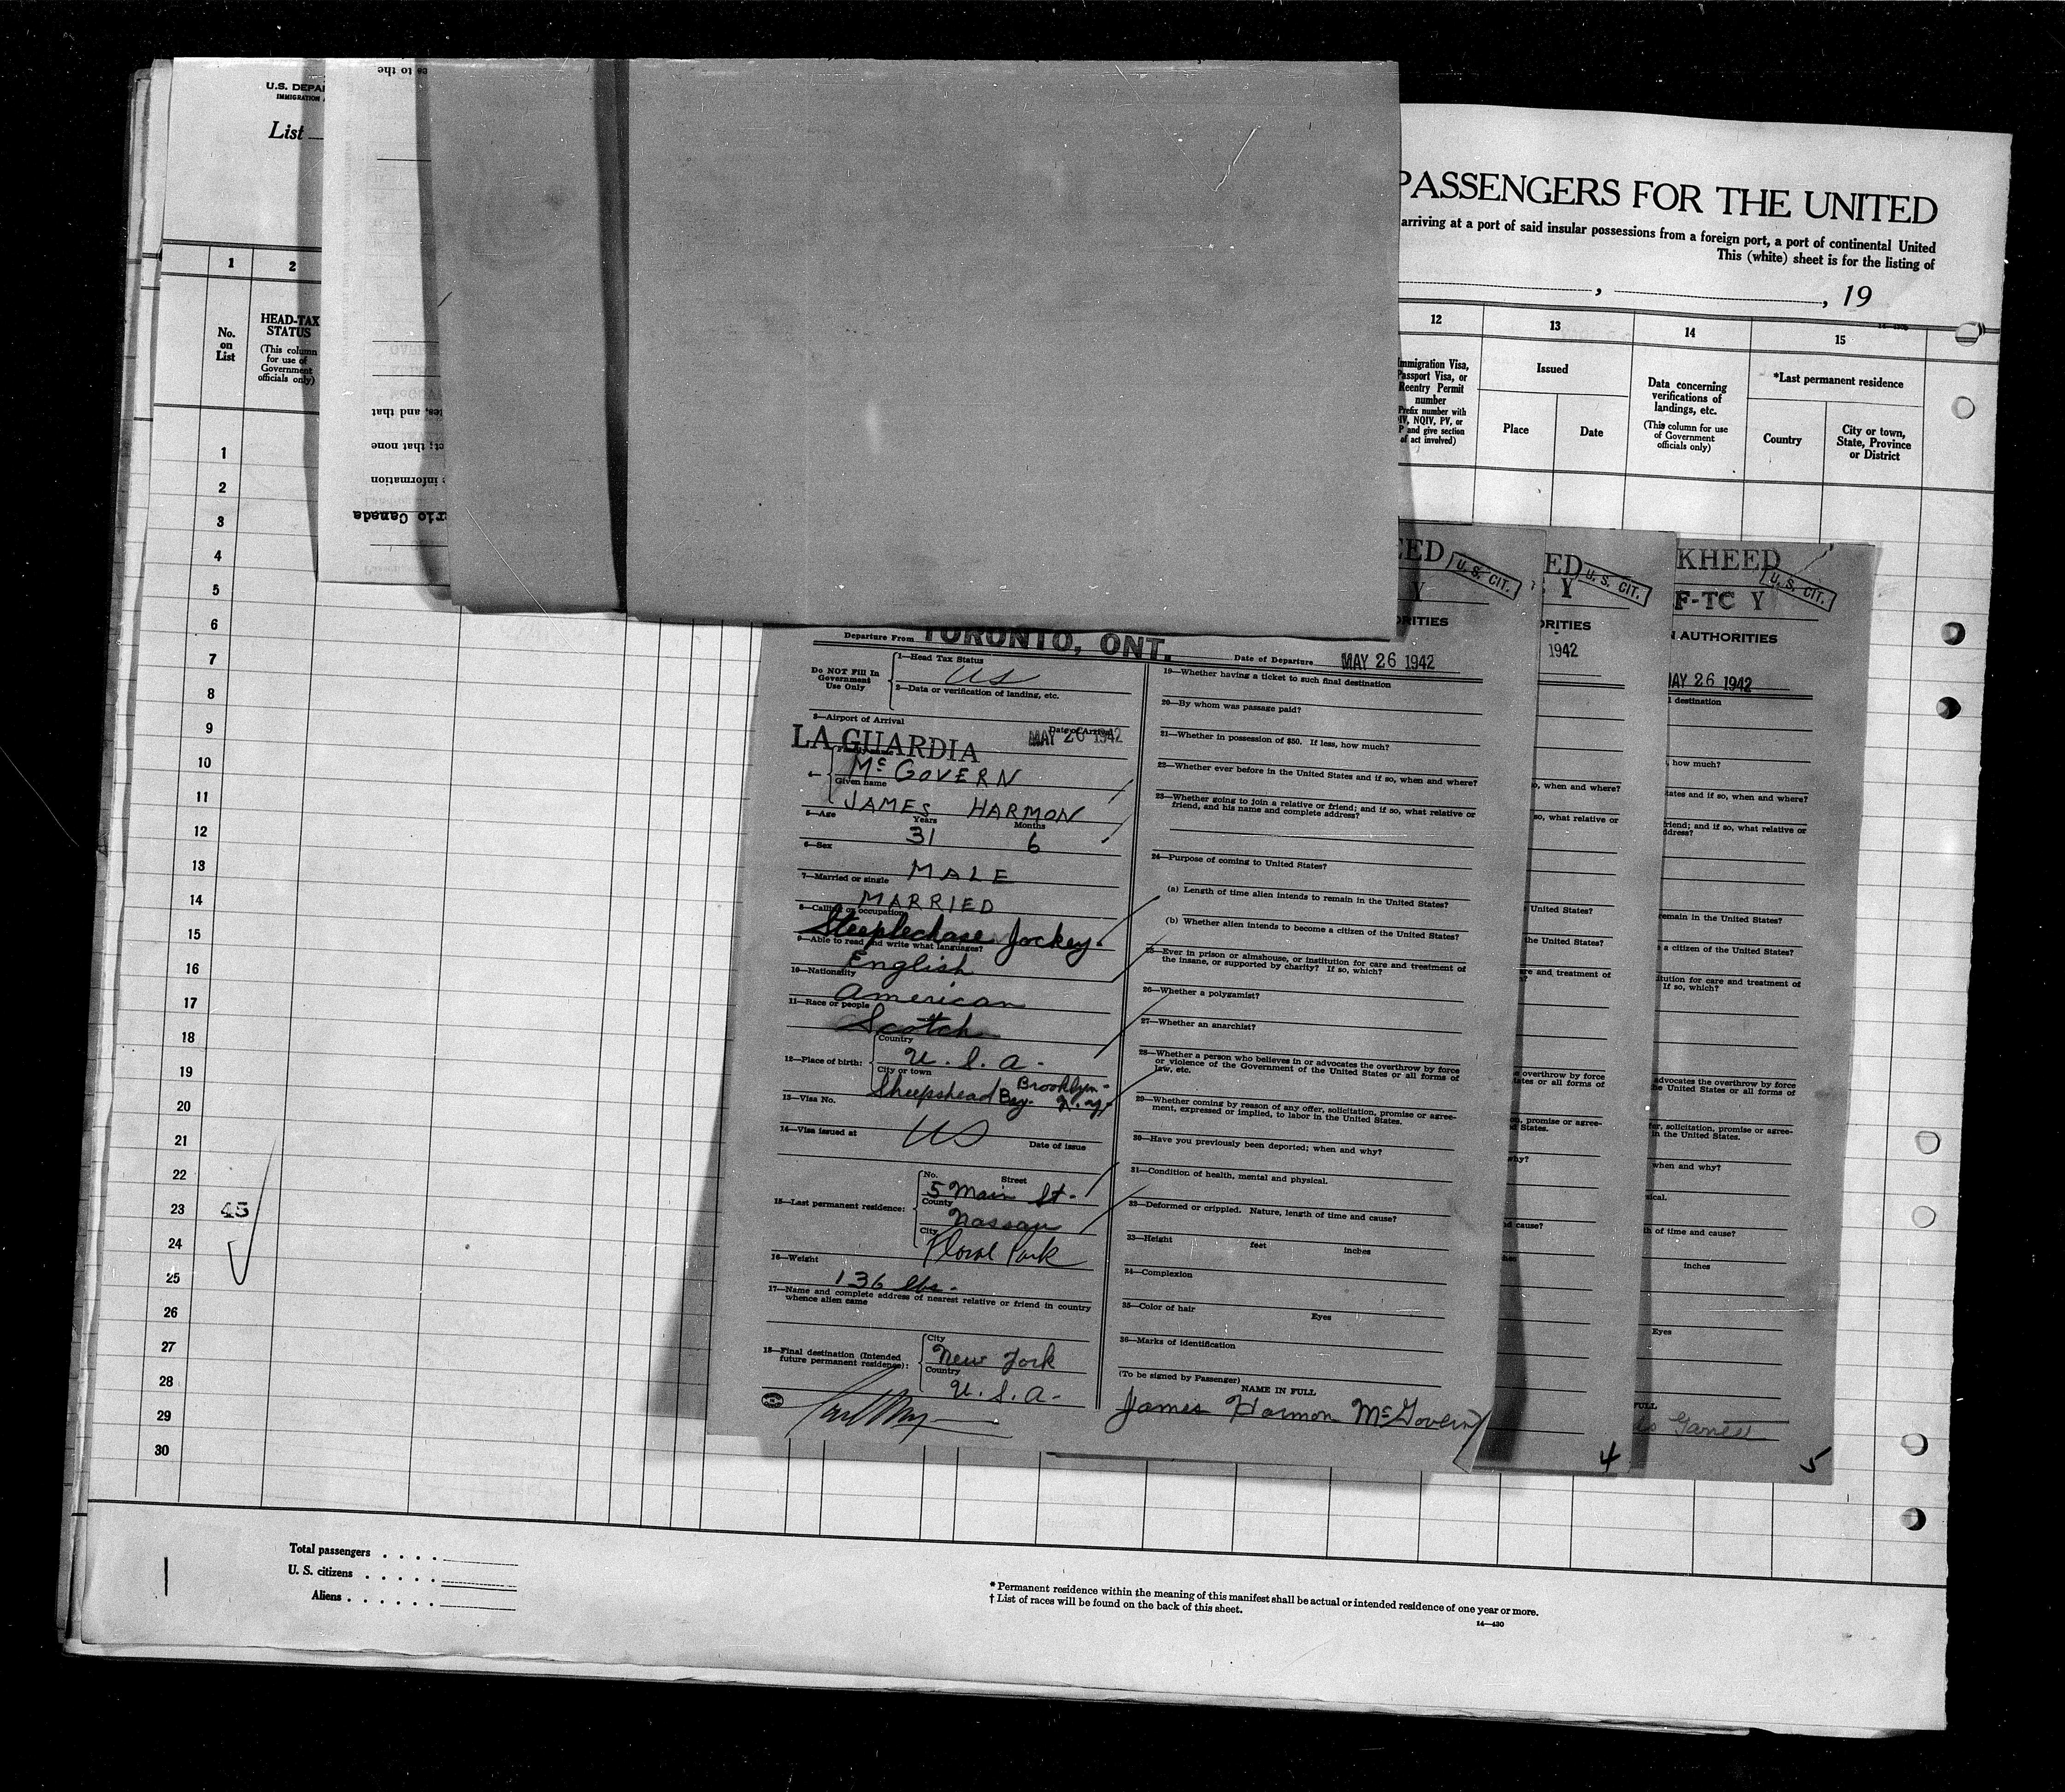 U.S. DEPA
IMMIGRATION
List
es to the
tes, and that
ct; that none
e information
rio Canada
PASSENGERS FOR THE UNITED
arriving at a port of said insular possessions from a foreign port, a port of continental United
This (white) sheet is for the listing of
, , 19
1 2 12 13 14 15
No. on List
HEAD-TAX STATUS
(This column for use of Government officials only)
Immigration Visa, Passport Visa, or Reentry Permit number
Prefix number with
IV, NQIV, PV, or
P and give section
of act involved)
Issued
Place Date
Data concerning verifications of landings, etc.
(This column for use of Government officials only)
*Last permanent residence
Country
City or town, State, Province or District
1
2
3
4
5
6
7
8
9
10
11
12
13
14
15
16
17
18
19
20
21
22
23 45
24
25
26
27
28
29
30
EED
U. S. CIT.
Y
RITIES
Departure From TORONTO, ONT. Date of Departure MAY 26 1942
Do NOT Fill In Government Use Only
1—Head Tax Status
US
2—Data or verification of landing, etc.
3—Airport of Arrival Date of Arrival
LA GUARDIA MAY 26 1942
4— McGOVERN
Given name
JAMES HARMON
5—Age Years Months
31 6
6—Sex
MALE
7—Married or single
MARRIED
8—Calling or occupation
Steeplechase Jockey.
9—Able to read and write what languages?
English
10—Nationality
American
11—Race or people
Scotch
12—Place of birth: Country
U. S. A.
City or town
Sheepshead Bay. Brooklyn - N.Y.
13—Visa No.
US
14—Visa issued at Date of issue
15—Last permanent residence:
No. Street
5 Main St.
County
Nassau
City
Floral Park
16—Weight
136 lbs.
17—Name and complete address of nearest relative or friend in country
whence alien came
18—Final destination (Intended
future permanent residence):
City
New York
Country
U. S. A.
19—Whether having a ticket to such final destination
20—By whom was passage paid?
21—Whether in possession of $50. If less, how much?
22—Whether ever before in the United States and if so, when and where?
23—Whether going to join a relative or friend; and if so, what relative or
friend, and his name and complete address?
24—Purpose of coming to United States?
(a) Length of time alien intends to remain in the United States?
(b) Whether alien intends to become a citizen of the United States?
25—Ever in prison or almshouse, or institution for care and treatment of
the insane, or supported by charity? If so, which?
26—Whether a polygamist?
27—Whether an anarchist?
28—Whether a person who believes in or advocates the overthrow by force
or violence of the Government of the United States or all forms of
law, etc.
29—Whether coming by reason of any offer, solicitation, promise or agree-
ment, expressed or implied, to labor in the United States.
30—Have you previously been deported; when and why?
31—Condition of health, mental and physical.
32—Deformed or crippled. Nature, length of time and cause?
33—Height feet inches
34—Complexion
35—Color of hair Eyes
36—Marks of identification
(To be signed by Passenger)
NAME IN FULL
James Harmon McGovern
ED
U. S. CIT.
Y
ORITIES
1942
o, when and where?
so, what relative or
United States?
the United States?
re and treatment of
overthrow by force
tates or all forms of
, promise or agree-
d States.
why?
d cause?
4
KHEED
U. S. CIT.
F-TC Y
N AUTHORITIES
MAY 26 1942
l destination
, how much?
tates and if so, when and where?
riend; and if so, what relative or
ddress?
emain in the United States?
a citizen of the United States?
itution for care and treatment of
If so, which?
advocates the overthrow by force
he United States or all forms of
fer, solicitation, promise or agree-
in the United States.
when and why?
sical.
th of time and cause?
inches
Eyes
FULL
5
Total passengers . . . .
U. S. citizens . . . . .
Aliens . . . . . .
* Permanent residence within the meaning of this manifest shall be actual or intended residence of one year or more.
† List of races will be found on the back of this sheet.
14—430